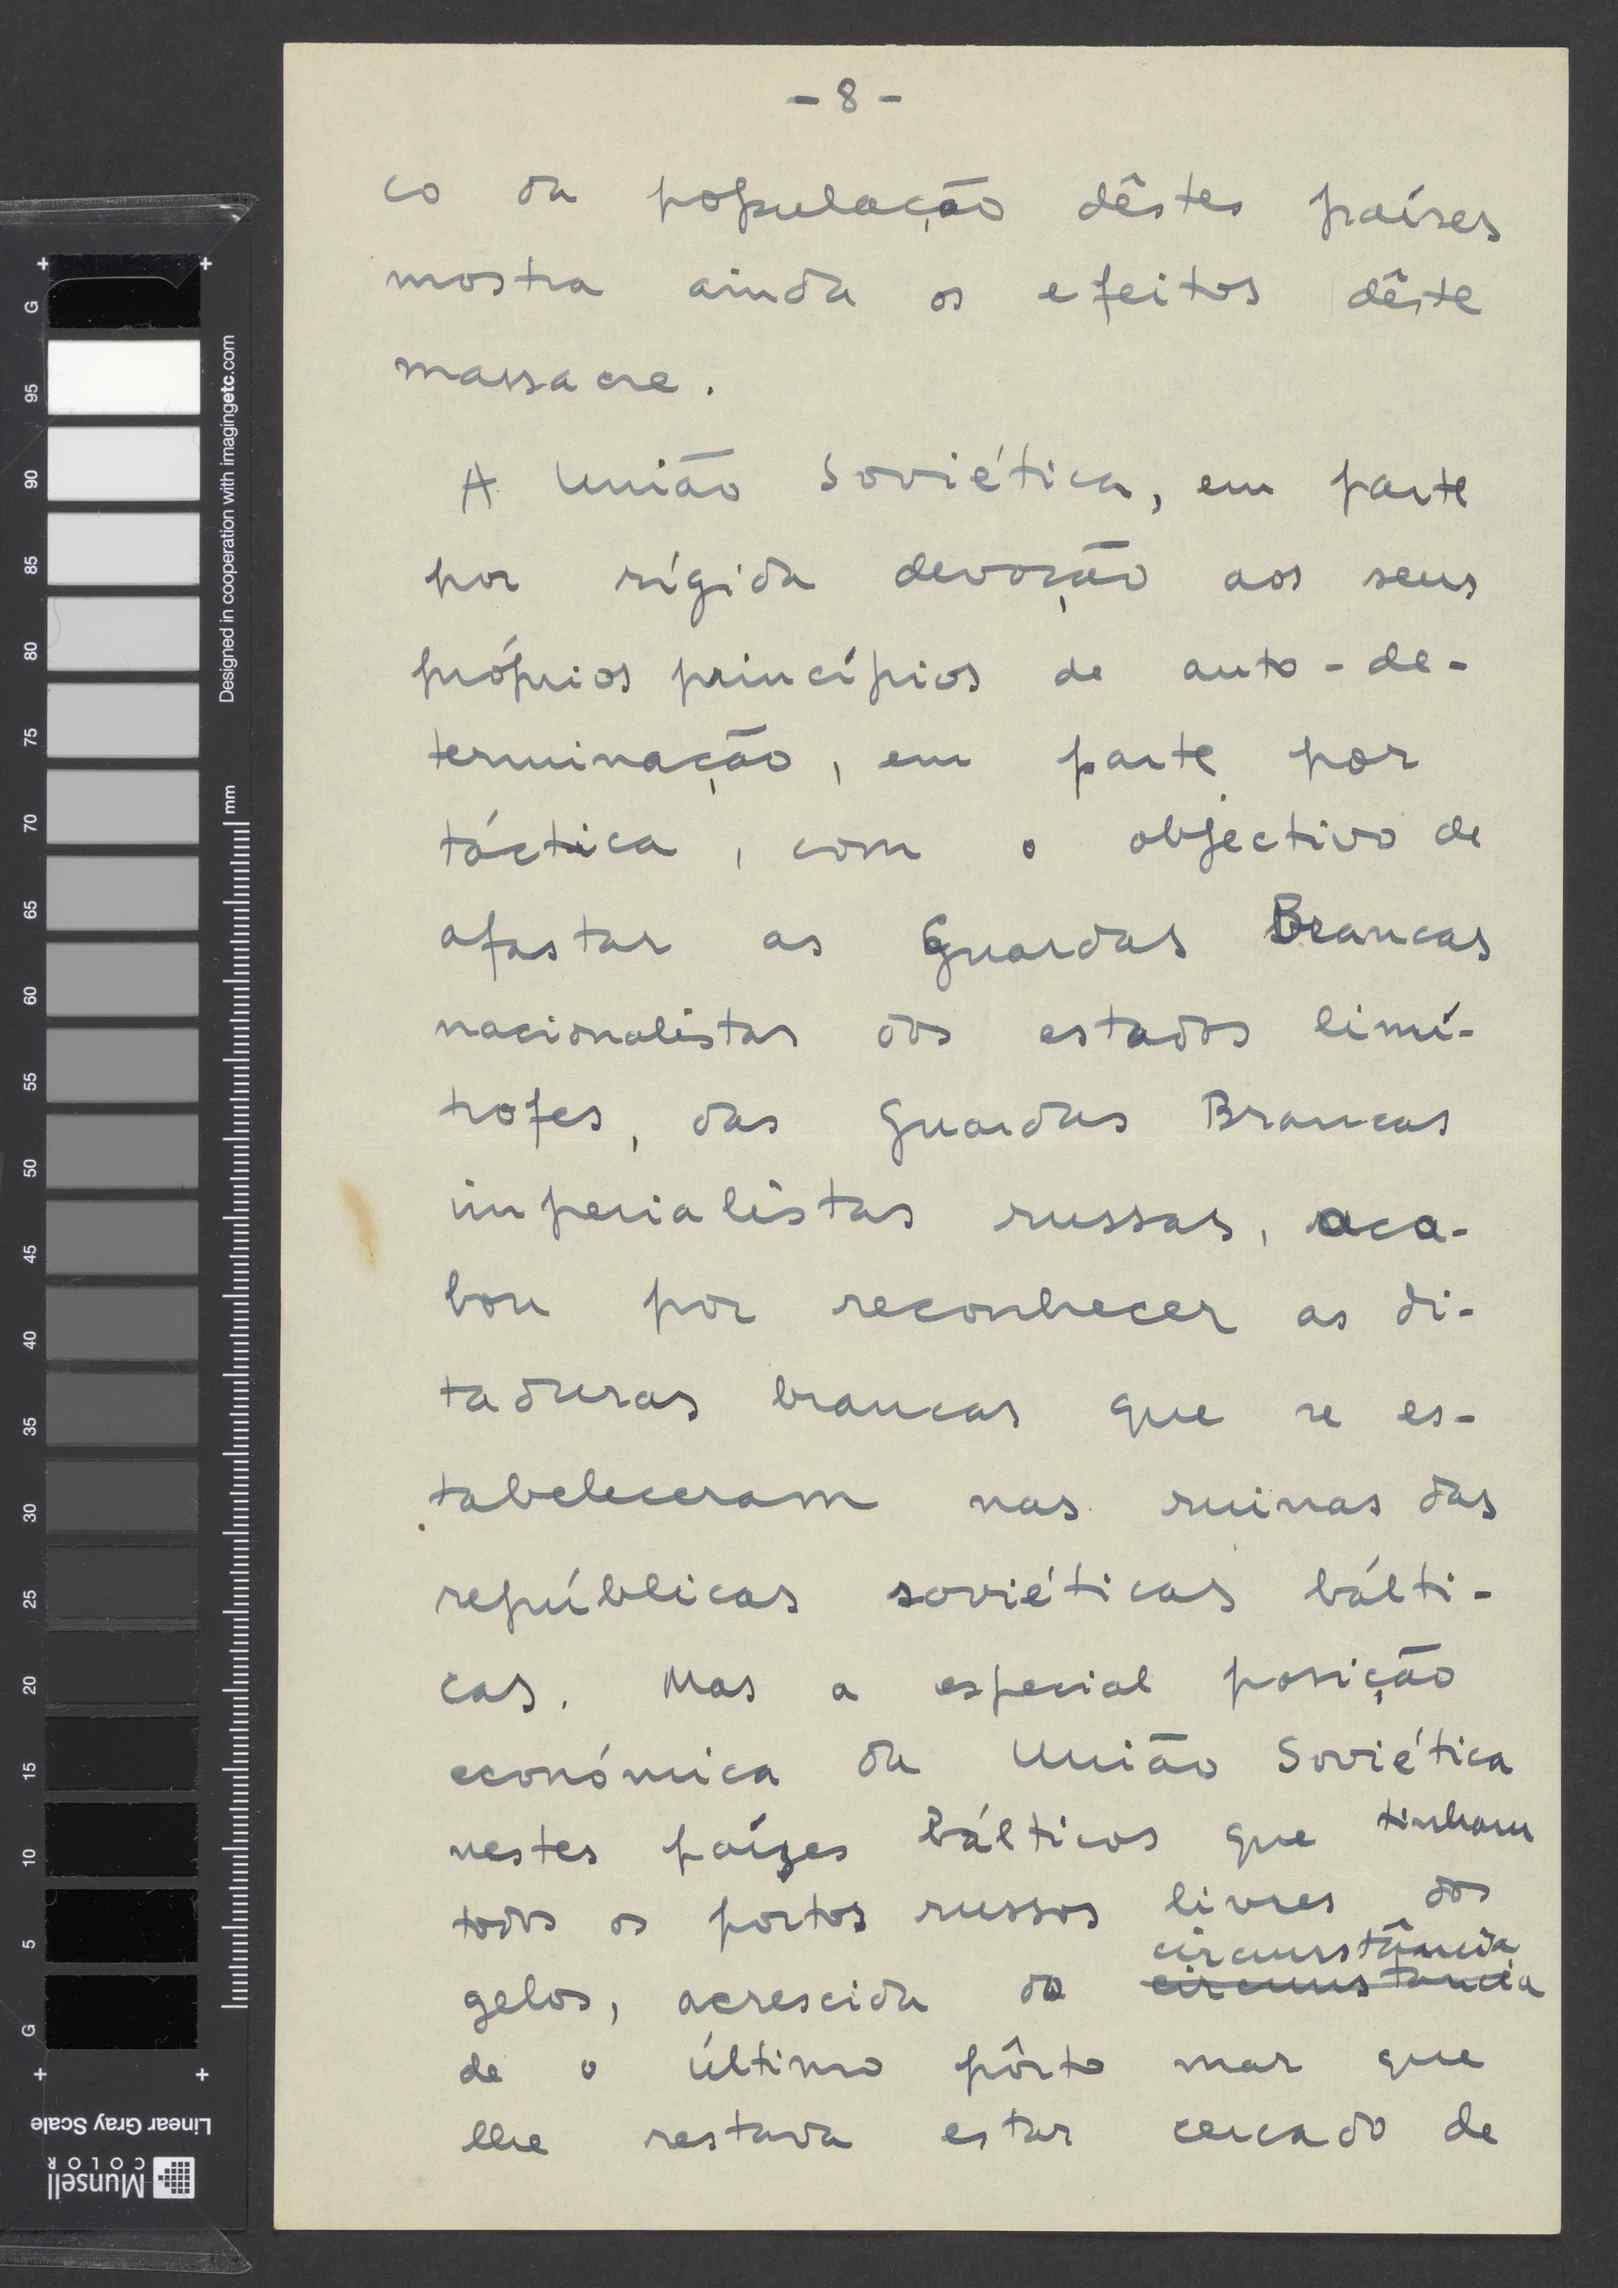 - 8 -
co da população dêstes países
mostra ainda os efeitos dêste
massacre.
A União Soviética, em parte
por rígida devoção aos seus
próprios princípios de auto-de-
terminação, em parte por
táctica, com o objectivo de
afastar as Guardas Brancas
nacionalistas dos estados limí-
trofes, das Guardas Brancas
imperialistas russas, aca-
bou por reconhecer as di-
taduras brancas que se es-
tabeleceram nas ruinas das
repúblicas soviéticas bálti-
cas. Mas a especial posição
económica da União Soviética
nestes paízes bálticos que tinham
todos os portos russos livres dos
circunstância
gelos, acrescida da circunstancia
de o último pôrto mar que
lhe restava estar cercado de
G
95
90
85
80
75
70
65
60
55
50
45
40
35
30
25
20
15
10
5
G
Designed in cooperation with imagingetc.com
mm
Linear Gray Scale
Munsell
COLOR